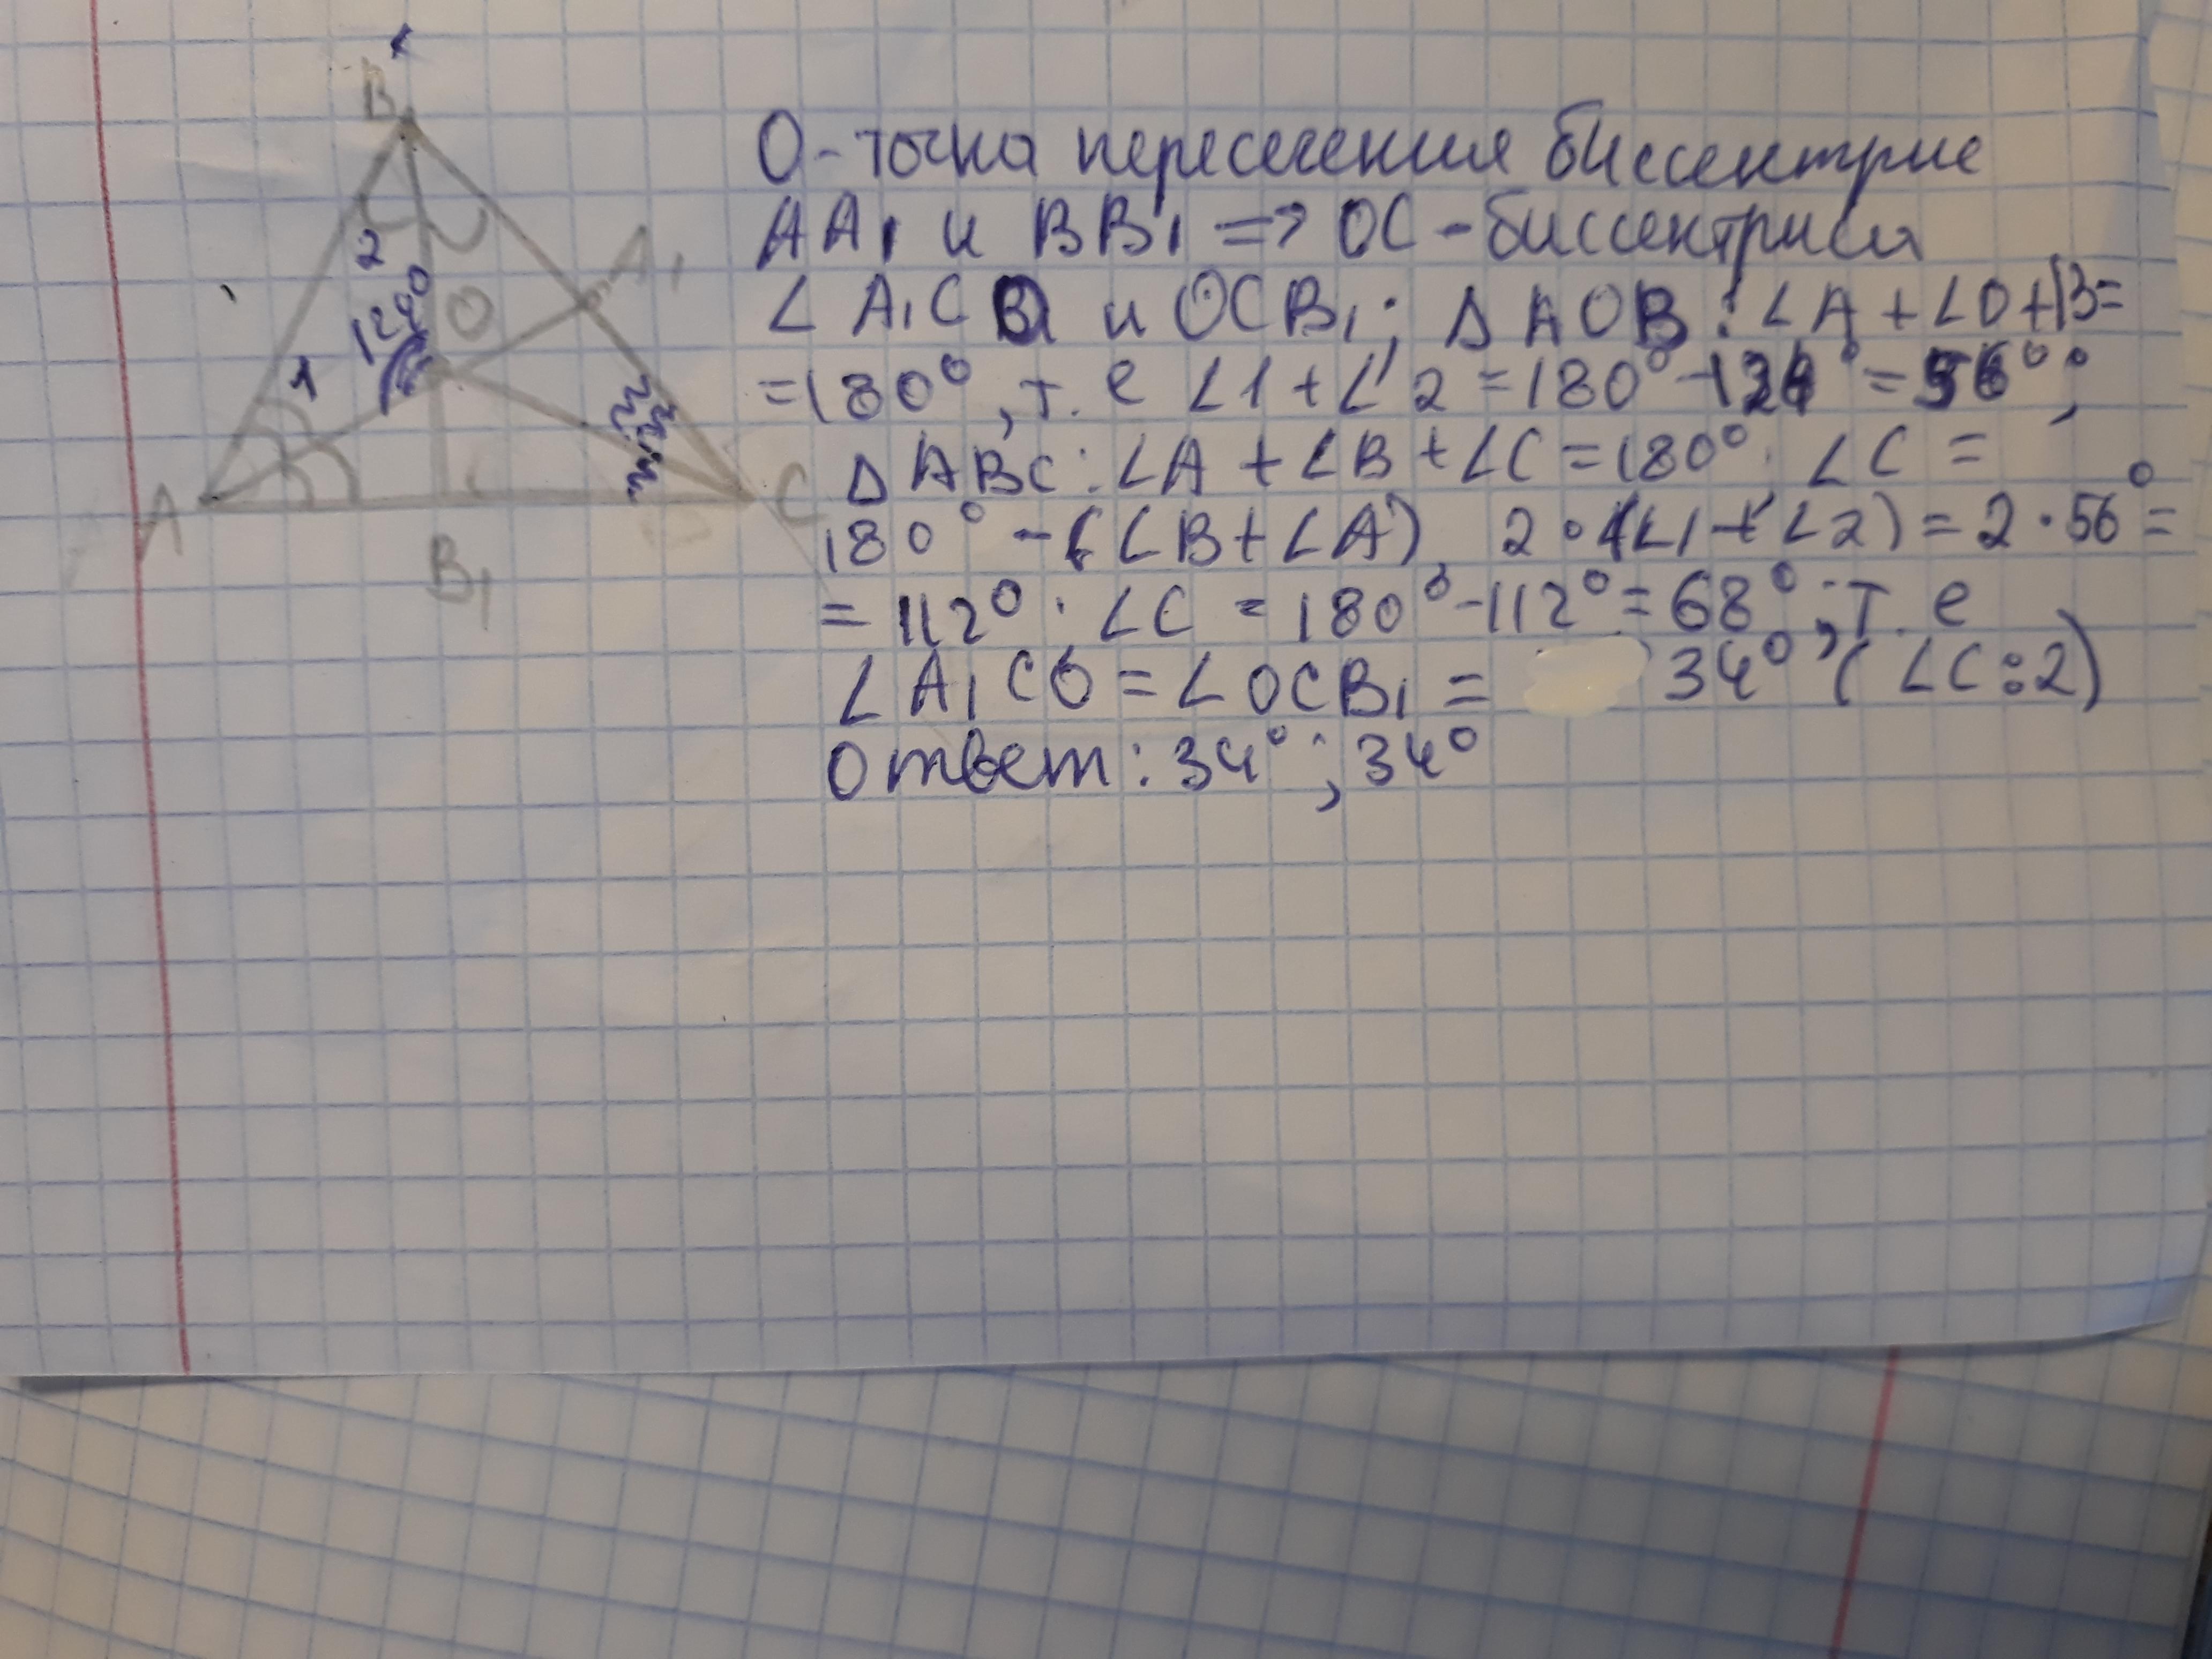 B
A₁
2
120°
O
1
A
C
B₁
О - точка пересечения биссектрис
AA₁ и BB₁ => OC - биссектриса
∠ A₁CO и OCB₁; Δ AOB: ∠A + ∠O + B =
= 180°, т. е ∠1 + ∠2 = 180° - 124° = 56°;
Δ ABC: ∠A + ∠B + ∠C = 180°. ∠C =
180° - (∠B + ∠A) 2 · (∠1 + ∠2) = 2 · 56° =
= 112°. ∠C = 180° - 112° = 68°, т. е
∠A₁CO = ∠OCB₁ = 34° (∠C : 2)
Ответ: 34°; 34°